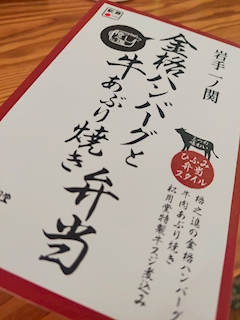 岩手一ノ関
金格ハンバーグと
牛あぶり焼き弁当
ひふみ
弁当
スタイル
格之進の金格ハンバーグ
牛肉あぶり焼き
松月堂特製牛スジ煮込み